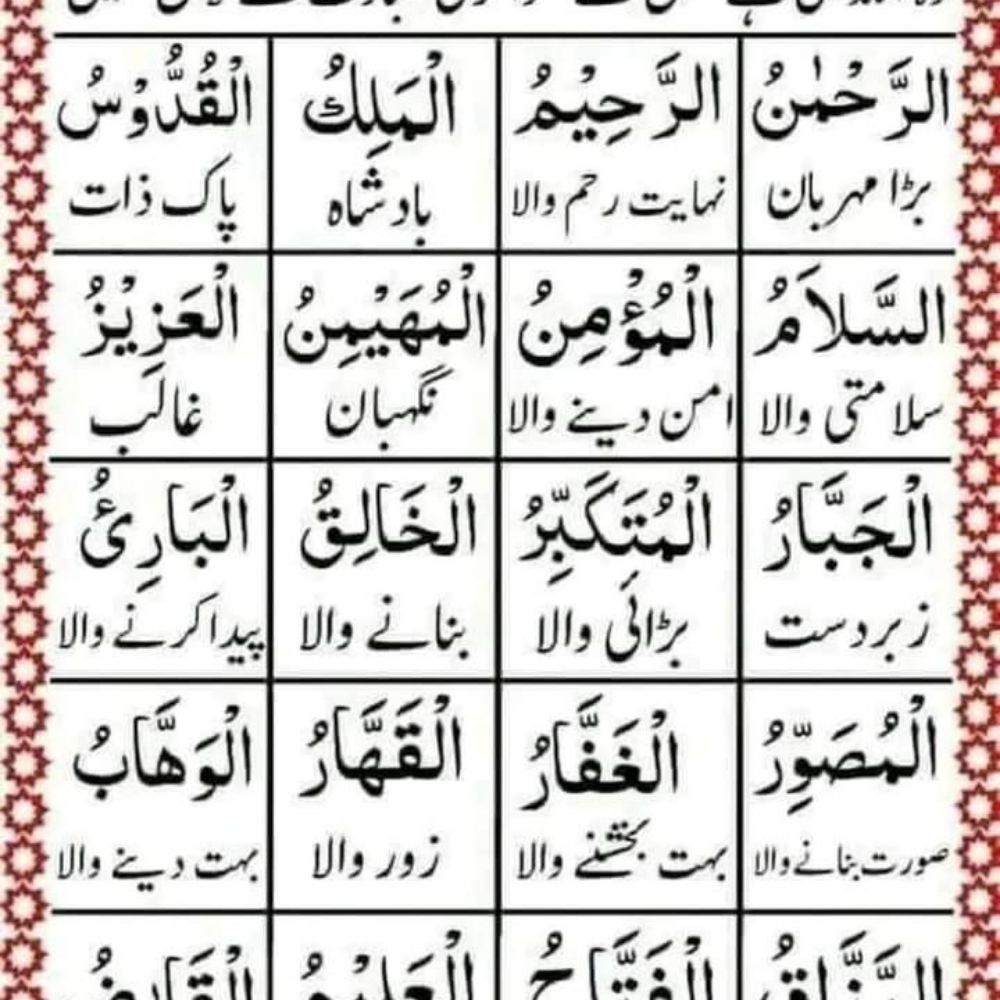 الرَّحْمٰنُ الرَّحِيْمُ الْمَلِكُ الْقُدُّوْسُ
بڑا مہربان نہایت رحم والا بادشاہ پاک ذات
السَّلاَمُ الْمُؤْمِنُ الْمُهَيْمِنُ الْعَزِيْزُ
سلامتی والا امن دینے والا نگہبان غالب
الْجَبَّارُ الْمُتَكَبِّرُ الْخَالِقُ الْبَارِئُ
زبردست بڑائی والا بنانے والا پیدا کرنے والا
الْمُصَوِّرُ الْغَفَّارُ الْقَهَّارُ الْوَهَّابُ
صورت بنانے والا بہت بخشنے والا زور والا بہت دینے والا
الْفَتَّاحُ الْعَلِيْمُ